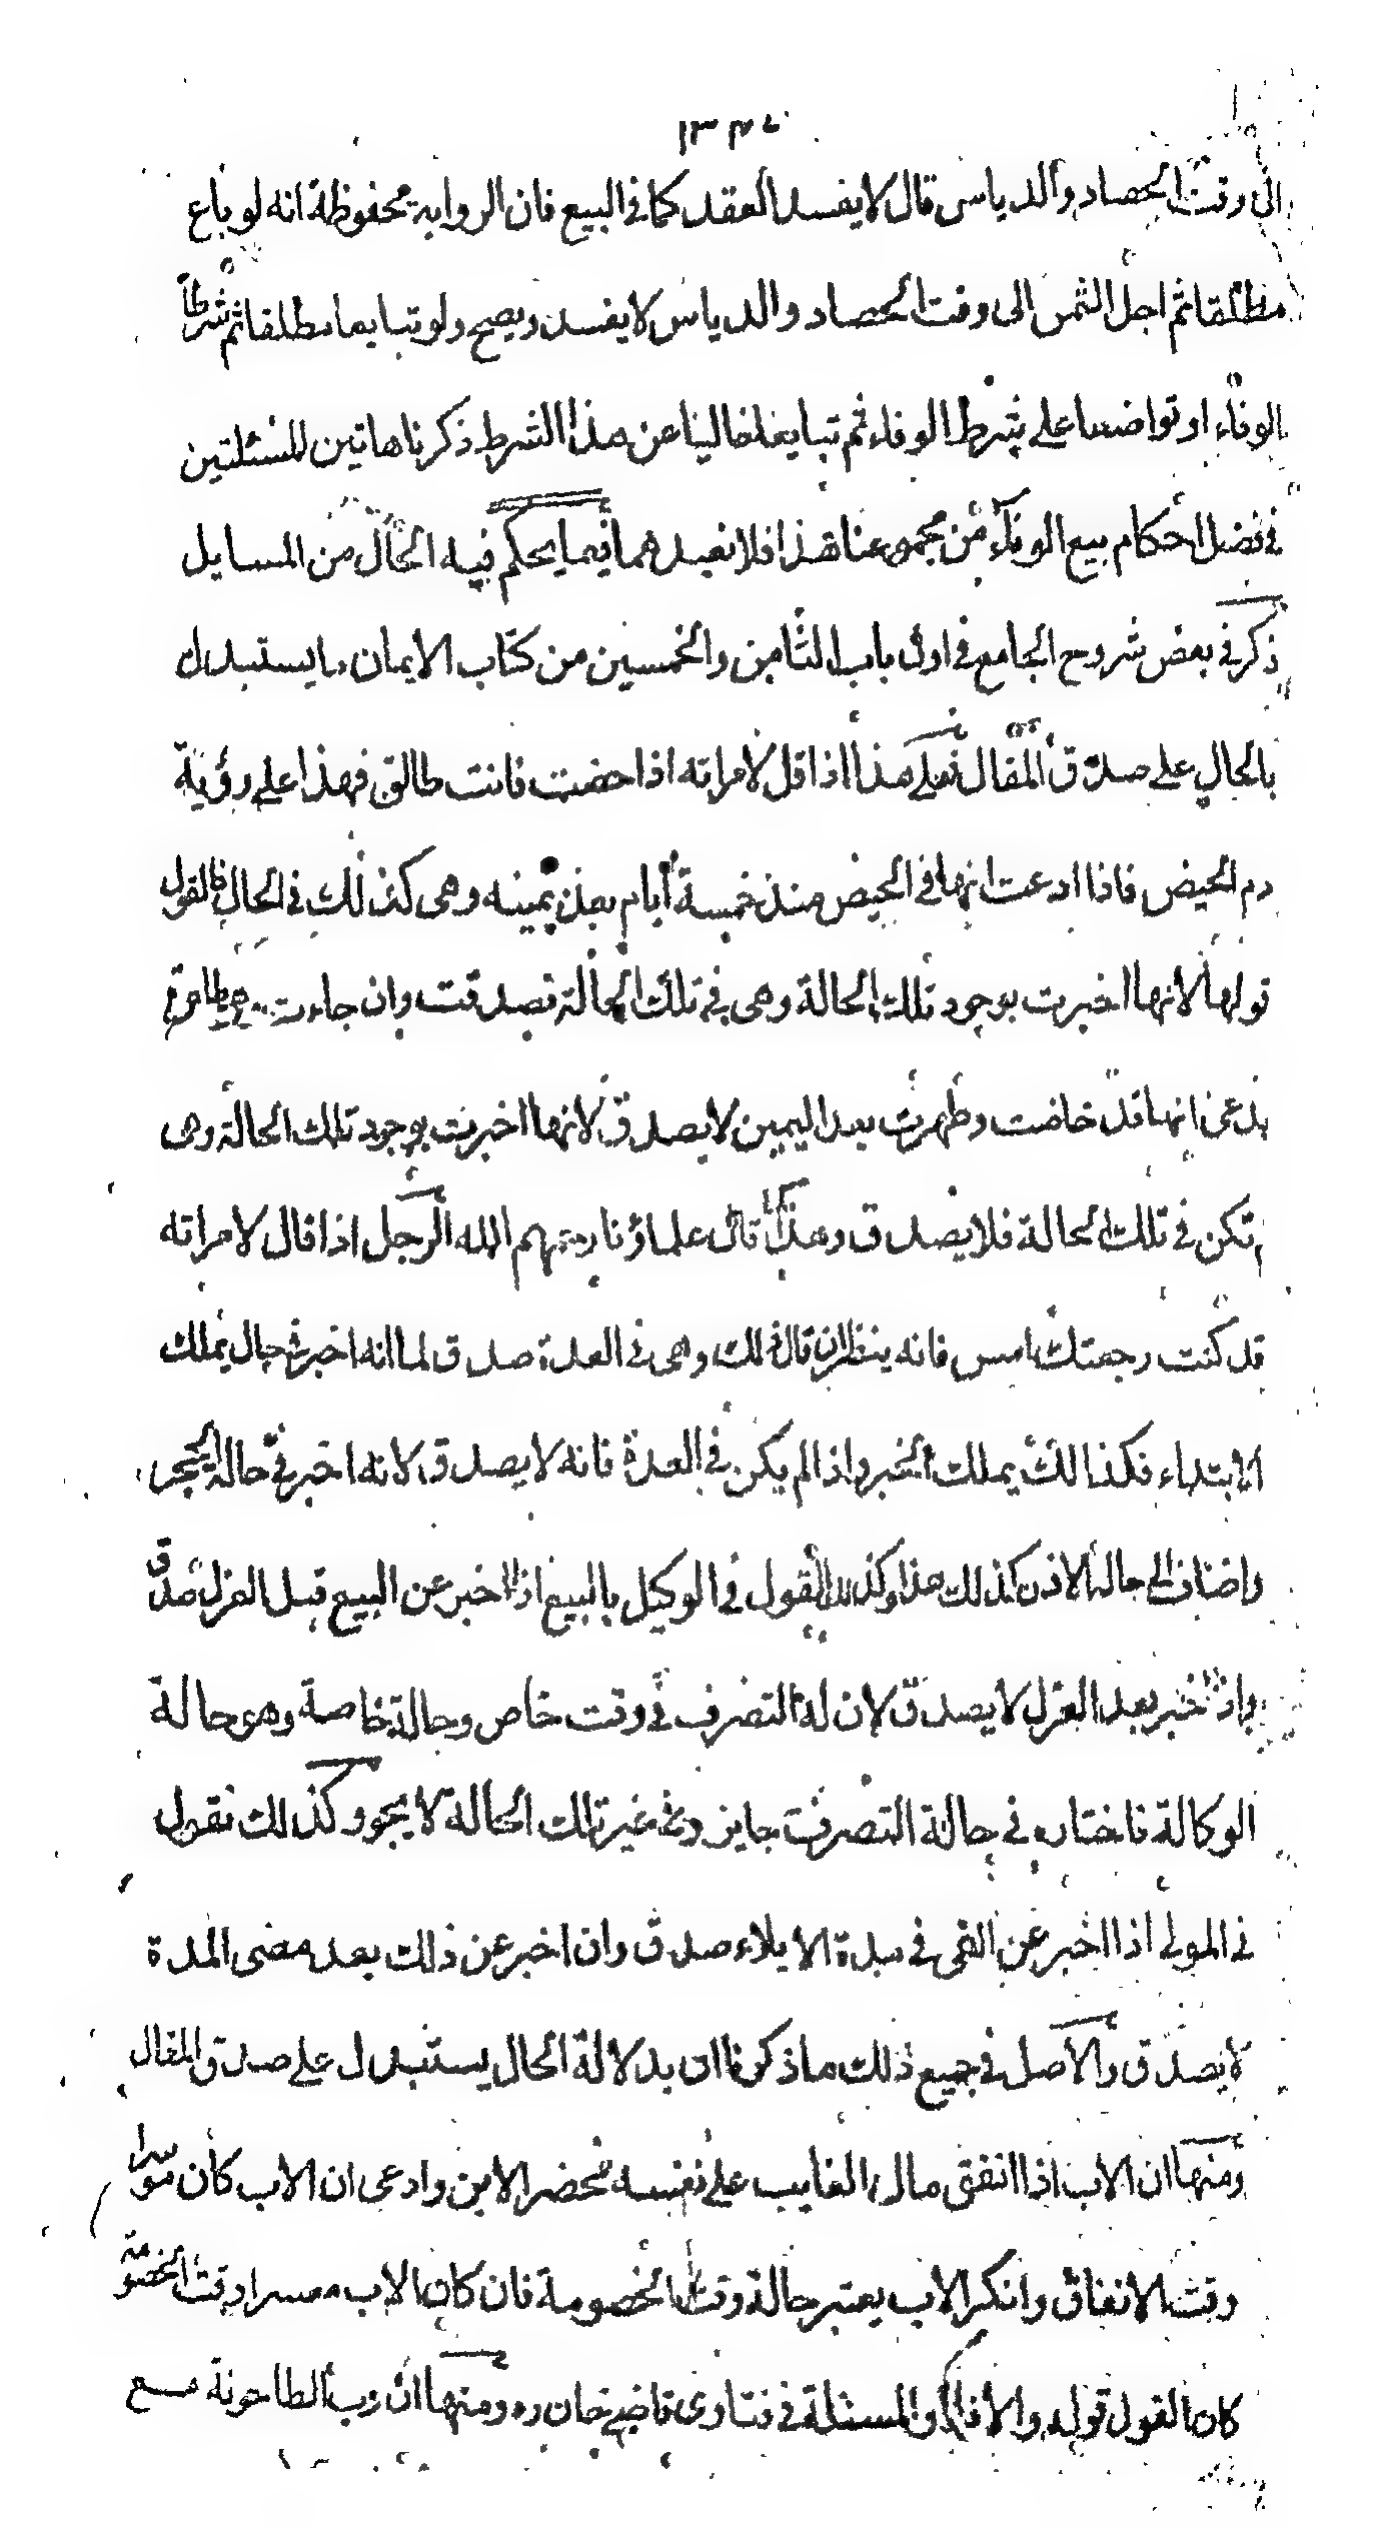 ١٣٤٧
الى وقت الحصاد والدياس قال لا يفسد العقد كما في البيع فان الرواية محفوظة انه لو باع
مطلقا ثم اجل الثمن الى وقت الحصاد والدياس لا يفسد ويصح ولو تبايعا مطلقا ثم شرطا
الوفاء او تواضعا على شرط الوفاء ثم تبايعا خاليا عن هذا الشرط ذكرنا هاتين المسئلتين
في فصل احكام بيع الوفاء من مجموعنا هذا فلا نعيدهما فيما يحكم فيه الحال من المسايل
ذكر في بعض شروح الجامع في اول باب الثامن والخمسين من كتاب الايمان ما يستبدل
بالحال على صدق المقال فعلى هذا اذا قل لامراته اذا حضت فانت طالق فهذا على رؤية
دم الحيض فاذا ادعت انها في الحيض منذ خمسة أيام بعد يمينه وهي كذلك في الحال فالقول
قولها لانها اخبرت بوجود تلك الحالة وهي في تلك الحالة فصدقت وان جاءت وهي طاهرة
يدعى انها قد حاضت وطهرت بعد اليمين لا يصدق لانها اخبرت بوجود تلك الحالة وهى
لم تكن في تلك الحالة فلا يصدق وهذا قال علماؤنا رحمهم الله الرجل اذا قال لامراته
قد كنت رجعتك امس فانه ينظر ان قال ذلك وهى في العدة صدق لما انه اخبر في حال يملك
الابتداء فكذالك يملك الخبر واذا لم يكن في العدة فانه لا يصدق لانه اخبر في حالة الحجر
واضاف الى حالة الاذن كذلك هذا وكذلك القول في الوكيل بالبيع اذا اخبر عن البيع قبل العزل صدق
وان اخبر بعد العزل لا يصدق لان له التصرف في وقت خاص وحالة خاصة وهى حالة
الوكالة فاختاره في حالة التصرف جايز وفي غير تلك الحالة لا يجوز وكذلك نقول
في المولى اذا اخبر عن الفى في مدة الايلاء صدق وان اخبر عن ذلك بعد مضى المدة
لا يصدق والاصل في جميع ذلك ما ذكرنا ان بدلالة الحال يستبدل على صدق المقال
ومنها ان الاب اذا انفق مال الغايب على نفسه فحضر الابن وادعى ان الاب كان موسرا
وقت الانفاق وانكر الاب يعتبر حالة وقت الخصومة فان كان الاب معسرا وقت الخصومة
كان القول قوله والا فلا والمسئلة في فتاوى قاضى خان ره ومنها ان رب الطاحونة مع